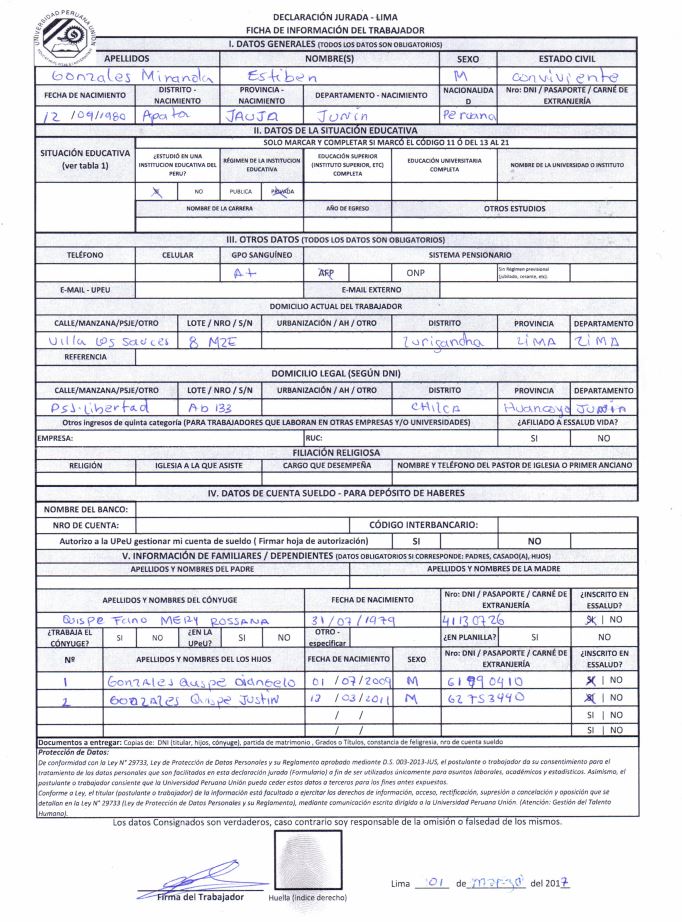 UNIVERSIDAD PERUANA UNIÓN
DECLARACIÓN JURADA - LIMA
FICHA DE INFORMACIÓN DEL TRABAJADOR
I. DATOS GENERALES (TODOS LOS DATOS SON OBLIGATORIOS)
APELLIDOS NOMBRE(S) SEXO ESTADO CIVIL
Gonzales Miranda Estiben M conviviente
FECHA DE NACIMIENTO DISTRITO - NACIMIENTO PROVINCIA - NACIMIENTO DEPARTAMENTO - NACIMIENTO NACIONALIDAD Nro: DNI / PASAPORTE / CARNÉ DE EXTRANJERÍA
12 /09/1980 Apata JAUJA JUNÍN Peruana
II. DATOS DE LA SITUACIÓN EDUCATIVA
SITUACIÓN EDUCATIVA (ver tabla 1)
SOLO MARCAR Y COMPLETAR SI MARCÓ EL CÓDIGO 11 Ó DEL 13 AL 21
¿ESTUDIÓ EN UNA INSTITUCION EDUCATIVA DEL PERU? RÉGIMEN DE LA INSTITUCION EDUCATIVA EDUCACIÓN SUPERIOR (INSTITUTO SUPERIOR, ETC) COMPLETA EDUCACIÓN UNIVERSITARIA COMPLETA NOMBRE DE LA UNIVERSIDAD O INSTITUTO
NO PUBLICA PRIVADA
NOMBRE DE LA CARRERA AÑO DE EGRESO OTROS ESTUDIOS
III. OTROS DATOS (TODOS LOS DATOS SON OBLIGATORIOS)
TELÉFONO CELULAR GPO SANGUÍNEO SISTEMA PENSIONARIO
A+ AFP ONP Sin Régimen previsional (jubilado, cesante, etc)
E-MAIL - UPEU E-MAIL EXTERNO
DOMICILIO ACTUAL DEL TRABAJADOR
CALLE/MANZANA/PSJE/OTRO LOTE / NRO / S/N URBANIZACIÓN / AH / OTRO DISTRITO PROVINCIA DEPARTAMENTO
Villa Los Sauces 8 MZE Lurigancha LIMA LIMA
REFERENCIA
DOMICILIO LEGAL (SEGÚN DNI)
CALLE/MANZANA/PSJE/OTRO LOTE / NRO / S/N URBANIZACIÓN / AH / OTRO DISTRITO PROVINCIA DEPARTAMENTO
PSJ. Libertad Ab 133 CHILCA Huancayo JUNÍN
Otros ingresos de quinta categoría (PARA TRABAJADORES QUE LABORAN EN OTRAS EMPRESAS Y/O UNIVERSIDADES) ¿AFILIADO A ESSALUD VIDA?
EMPRESA: RUC: SI NO
FILIACIÓN RELIGIOSA
RELIGIÓN IGLESIA A LA QUE ASISTE CARGO QUE DESEMPEÑA NOMBRE Y TELÉFONO DEL PASTOR DE IGLESIA O PRIMER ANCIANO
IV. DATOS DE CUENTA SUELDO - PARA DEPÓSITO DE HABERES
NOMBRE DEL BANCO:
NRO DE CUENTA: CÓDIGO INTERBANCARIO:
Autorizo a la UPeU gestionar mi cuenta de sueldo ( Firmar hoja de autorización) SI NO
V. INFORMACIÓN DE FAMILIARES / DEPENDIENTES (DATOS OBLIGATORIOS SI CORRESPONDE: PADRES, CASADO(A), HIJOS)
APELLIDOS Y NOMBRES DEL PADRE APELLIDOS Y NOMBRES DE LA MADRE
APELLIDOS Y NOMBRES DEL CÓNYUGE FECHA DE NACIMIENTO Nro: DNI / PASAPORTE / CARNÉ DE EXTRANJERÍA ¿INSCRITO EN ESSALUD?
Quispe MERY ROSSANA 31/07/1979 41130726 SI | NO
¿TRABAJA EL CÓNYUGE? SI NO ¿EN LA UPeU? SI NO OTRO - especificar ¿EN PLANILLA? SI NO
Nº APELLIDOS Y NOMBRES DEL LOS HIJOS FECHA DE NACIMIENTO SEXO Nro: DNI / PASAPORTE / CARNÉ DE EXTRANJERÍA ¿INSCRITO EN ESSALUD?
1 Gonzales Quispe Diangelo 01 /07/2009 M 61990410 SI | NO
2 Gonzales Quispe JUSTIN 12 /03/2011 M 62753990 SI | NO
/ / SI | NO
/ / SI | NO
Documentos a entregar: Copias de: DNI (titular, hijos, cónyuge), partida de matrimonio , Grados o Títulos, constancia de feligresia, nro de cuenta sueldo
Protección de Datos:
De conformidad con la Ley N° 29733, Ley de Protección de Datos Personales y su Reglamento aprobado mediante D.S. 003-2013-JUS, el postulante o trabajador da su consentimiento para el
tratamiento de los datos personales que son facilitados en esta declaración jurada (Formulario) a fin de ser utilizados únicamente para asuntos laborales, académicos y estadísticos. Asimismo, el
postulante o trabajador consiente que la Universidad Peruana Unión pueda ceder estos datos a terceros para los fines antes expuestos.
Conforme a Ley, el titular (postulante o trabajador) de la información está facultado a ejercitar los derechos de información, acceso, rectificación, supresión o cancelación y oposición que se
detallan en la Ley N° 29733 (Ley de Protección de Datos Personales y su Reglamento), mediante comunicación escrita dirigida a la Universidad Peruana Unión. (Atención: Gestión del Talento
Humano).
Los datos Consignados son verdaderos, caso contrario soy responsable de la omisión o falsedad de los mismos.
Firma del Trabajador Huella (indice derecho) Lima 01 de marzo del 2017